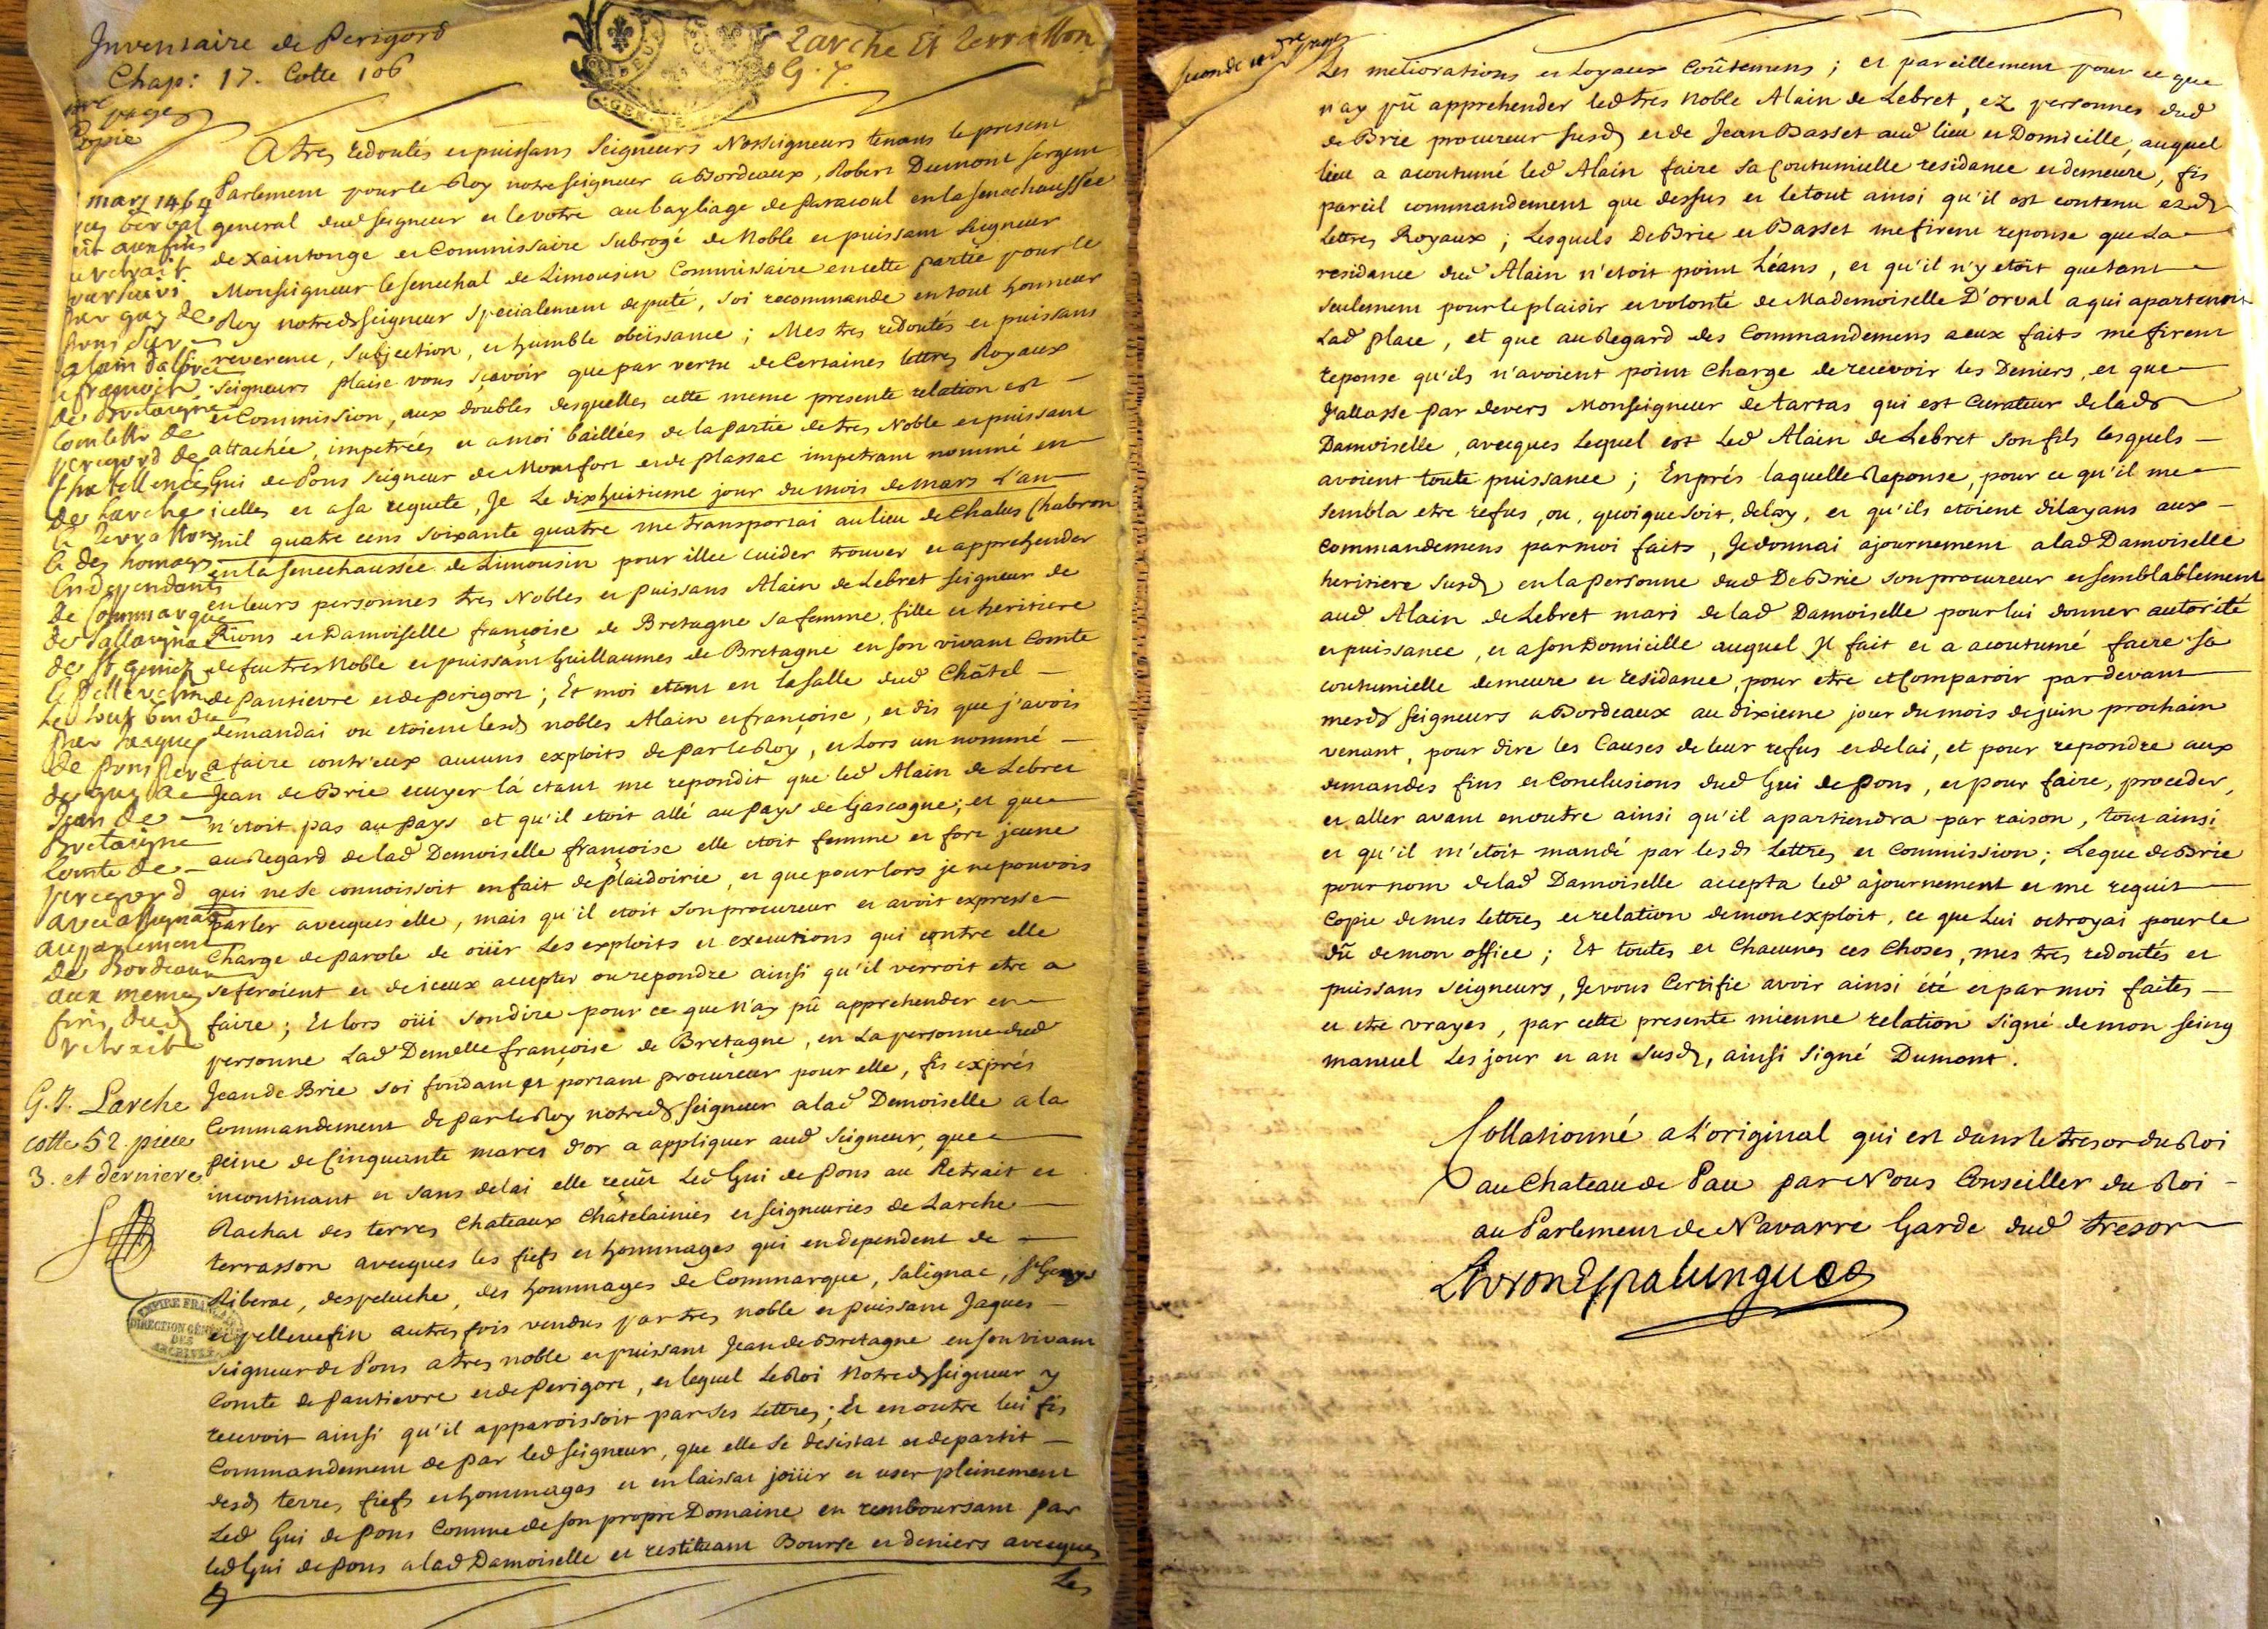 Inventaire de Perigord
Chap: 17. Cotte 106
Larche Et Terrasson
G. 7.
1ere page
Copie
A tres redoutés et puissans Seigneurs Nosseigneurs tenans le present
Parlement pour le Roy notre seigneur a Bordeaux, Robert Dumont sergent
general dud seigneur et le votre au bayliage de Paracoul en la senechaussée
de Xaintonge et Commissaire subrogé de Noble et puissant seigneur
Monseigneur le senechal de Limousin Commissaire en cette partie pour le
Roy notred seigneur specialement deputé, soi recommande en tout honneur
reverence, subjection, et humble obeïssance; Mes tres redoutés et puissans
seigneurs plaise vous sçavoir que par vertu de Certaines lettres Royaux
et Commission, aux doubles desquelles cette meme presente relation est
attachée, impetrées et a moi baillées de la partie de tres Noble et puissant
Gui de Pons seigneur de Monfort et de Plassac impetrant nommé en
icelles et a sa requete, Je Le dixhuitieme jour du mois de mars L'an
mil quatre cens soixante quatre me transportai au lieu de Chalus Chabron
en la senechaussée de Limousin pour illec cuider trouver et apprehender
en leurs personnes tres Nobles et puissans Alain de Lebret seigneur de
Rions et Damoiselle françoise de Bretagne sa femme, fille et heritiere
de feu tres Noble et puissant Guillaumes de Bretagne en son vivant Comte
de Pantievre et de perigort; Et moi etant en la salle dud Châtel
demandai ou etoient lesd nobles Alain et françoise, et dis que j'avois
a faire contr'eux aucuns exploits de par le Roy, et Lors un nommé
Jean de Brie ecuyer là etant me repondit que led Alain de Lebret
n'etoit pas au pays et qu'il etoit allé au pays de Gascogne; et que
au Regard de lad Demoiselle francoise elle etoit femme et fort jeune
qui ne se connoissoit en fait de plaidoirie, et que pour lors je ne pouvois
parler avecques elle, mais qu'il etoit son procureur et avoit expresse
Charge de parole de oüir Les exploits et executions qui contre elle
se feroient et de iceux accepter ou repondre ainsi qu'il verroit etre a
faire; Et lors oüi son dire pour ce que n'ay pû apprehender en
personne Lad Demelle françoise de Bretagne, en La personne dud
Jean de Brie soi fondant et portant procureur pour elle, fis exprés
Commandement de par le Roy notred seigneur a lad Demoiselle a la
peine de Cinquante marcs d'or a appliquer aud seigneur, que
incontinant et sans delai elle reçut Led Gui de Pons au Retrait et
Rachat des terres Chateaux Chatelainies et seigneuries de Larche
terrasson avecques les fiefs et hommages qui en dependent de
Riberac, despeluche, des hommages de Commarque, Salignac, St Genyes
et pellevefin autres fois vendus par tres noble et puissant Jaques
seigneur de Pons a tres noble et puissant Jean de Bretagne en son vivant
Comte de Pantievre et de Perigort, et lequel Le Roi Notred seigneur y
recevoit ainsi qu'il apparoissoit par ses Lettres; Et en outre lui fis
Commandement de par led seigneur, que elle se desistat et departit
desd terres fiefs et hommages et en laissat joüir et user pleinement
Led Gui de Pons Comme de son propre Domaine en remboursant par
led Gui de Pons a lad Damoiselle et restituant Bourse et deniers avecques
Les
mars 1464
fait aux fins
de retrait
poursuivi
par guy de
pons sur
alain dalbret
et francoise
de bretaigne
Comtesse de
perigord des
chatellenies
de Larche
et Terrasson
et des homages
en dependants
de Commarque
de sallaignac
de st geniez
et pellevezin
par Jacques
de pons pere
de guy a
Jean de
Bretaigne
Comte de
perigord
avec assignation
au parlement
de Bordeaux
aux memes
fins dud
retrait
G. 7. Larche
cotte 52. piece
3. et derniere
EMPIRE FRANÇAIS
DIRECTION GÉNÉRALE
DES
ARCHIVES
seconde et dre page
Les meliorations et Loyaux Coûtemens; et pareillement pour ce que
n'ay pû apprehender led tres Noble Alain de Lebret, ez personnes dud
de Brie procureur susd et de Jean Basset aud lieu et Domicille, auquel
lieu a acoutumé led Alain faire sa Coutumielle residance et demeure, fis
pareil commandement que dessus et le tout ainsi qu'il est contenu ezd
Lettres Royaux; Lesquels De Brie et Basset me firent reponse que La
residance dud Alain n'etoit point Léans, et qu'il n'y etoit que tant
seulement pour le plaisir et volonté de Mademoiselle D'orval a qui apartenoit
Lad place, et que au Regard des Commandemens a eux faits me firent
reponse qu'ils n'avoient point Charge de recevoir les Deniers, et que
J'allasse par devers Monseigneur de tartas qui est Curateur de lad
Damoiselle, avecques Lequel est Led Alain de Lebret son fils lesquels
avoient toute puissance; Enprés laquelle Reponse, pour ce qu'il me
sembla etre refus, ou, quoique soit, delay, et qu'ils etoient dilayans aux
Commandemens par moi faits, Je donnai ajournement a lad Damoiselle
heritiere susd en la personne dud De Brie son procureur et semblablement
aud Alain de Lebret mari de lad Damoiselle pour lui donner autorité
et puissance, et a son Domicille auquel Il fait et a acoutumé faire sa
coutumielle demeure et residance, pour etre et Comparoir pardevant
mesd seigneurs a Bordeaux au dixieme jour du mois de juin prochain
venant, pour dire les Causes de leur refus et delai, et pour repondre aux
demandes fins et Conclusions dud Gui de Pons, et pour faire, proceder,
et aller avant en outre ainsi qu'il apartiendra par raison, tout ainsi
et qu'il m'etoit mandé par lesd Lettres et Commission; Leque de Brie
pour nom de lad Damoiselle accepta led ajournement et me requit
Copie de mes Lettres et relation de mon exploit, ce que Lui octroyai pour le
dû de mon office; Et toutes et Chacunes ces Choses, mes tres redoutés et
puissans seigneurs, Je vous Certifie avoir ainsi été et par moi faites
et etre vrayes, par cette presente mienne relation signé de mon seing
manuel Les jour et an susd, ainsi signé Dumont.
Collationné a L'original qui est dans le tresor du Roi
au Chateau de Pau par Nous Conseiller du Roi
au Parlement de Navarre Garde dud tresor
Livron Espalungue